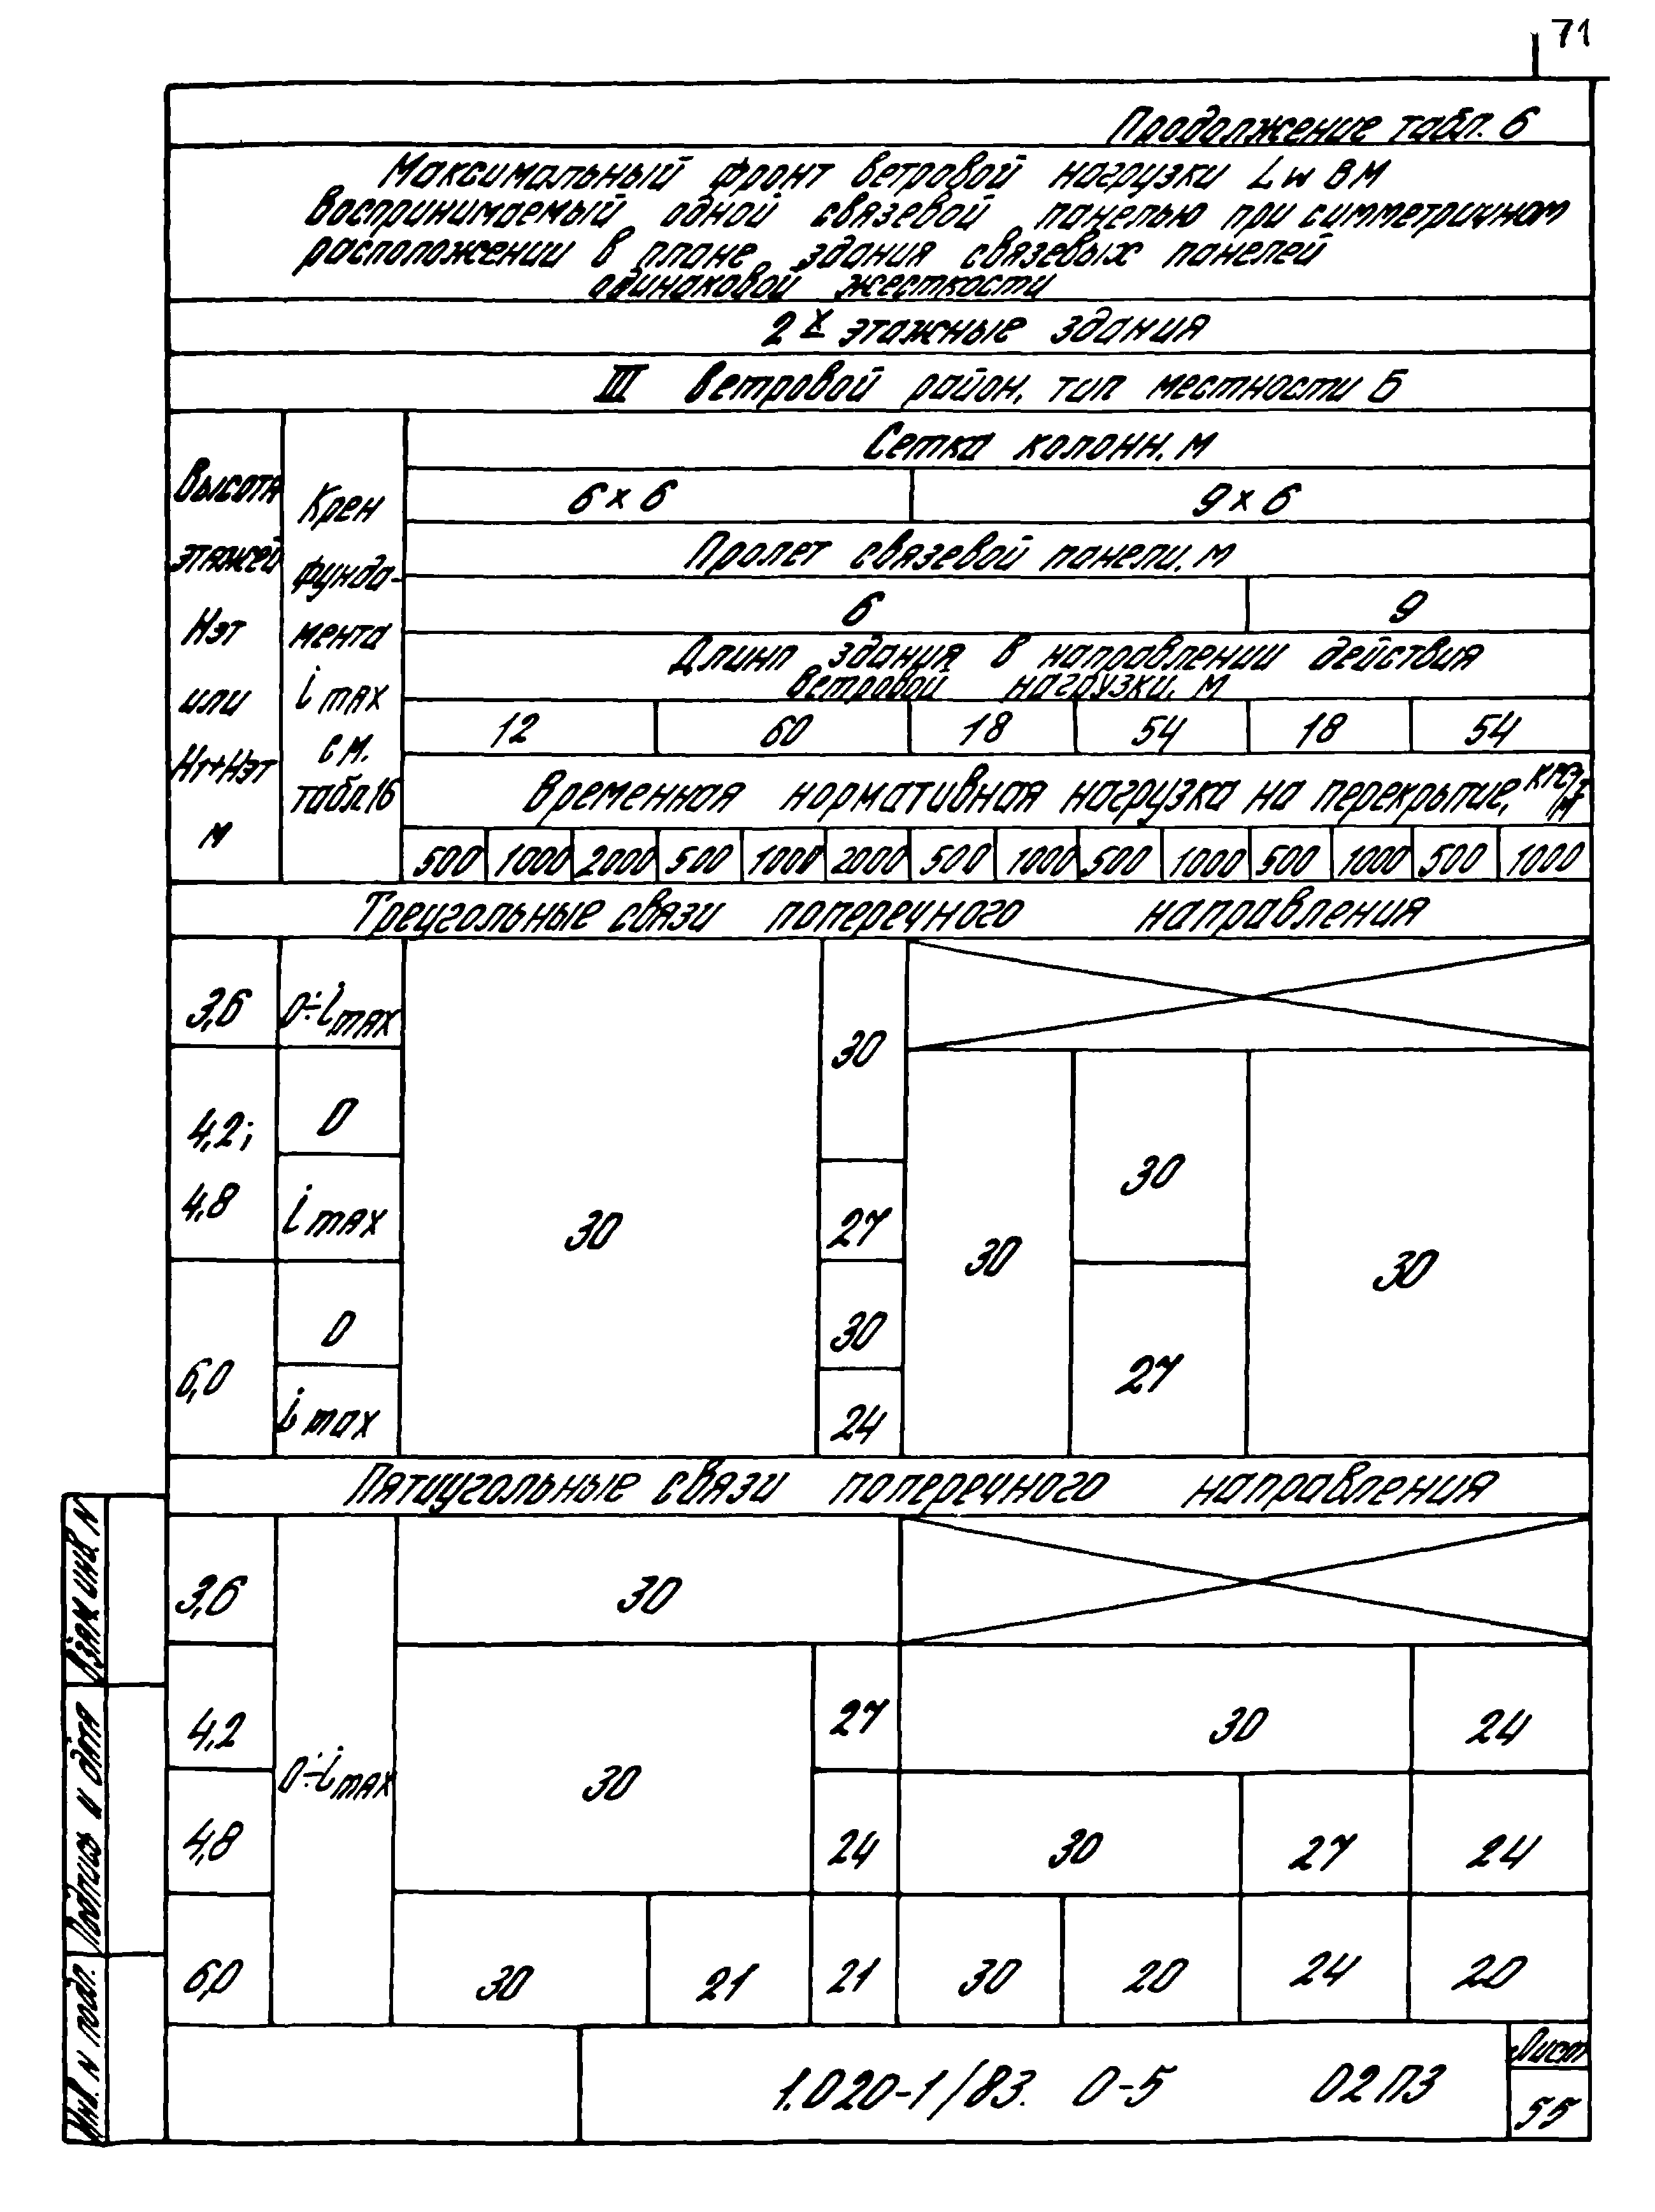 71
Продолжение табл. 6
Максимальный фронт ветровой нагрузки Lw в м
воспринимаемый одной связевой панелью при симметричном
расположении в плане здания связевых панелей
одинаковой жесткости
2х этажные здания
III Ветровой район, тип местности Б
Высота
этажей
Нэт
или
Нт+Нэт
м
Крен
фунда-
мента
i max
см.
табл.16
Сетка колонн, м
6 x 6
9 x 6
Пролет связевой панели, м
6
9
Длина здания в направлении действия
ветровой нагрузки, м
12
60
18
54
18
54
Временная нормативная нагрузка на перекрытие, кгс/м²
500
1000
2000
500
1000
2000
500
1000
500
1000
500
1000
500
1000
Треугольные связи поперечного направления
3,6
0÷imax
30
30
4,2;
4,8
0
i max
27
30
30
30
30
6,0
0
i max
30
24
27
Пятиугольные связи поперечного направления
3,6
0÷imax
30
4,2
30
27
30
24
4,8
24
30
27
24
6,0
30
21
21
30
20
24
20
1.020-1/83. 0-5 02ПЗ
Лист
55
Взам инв. N
Подпись и дата
Инв. N подл.